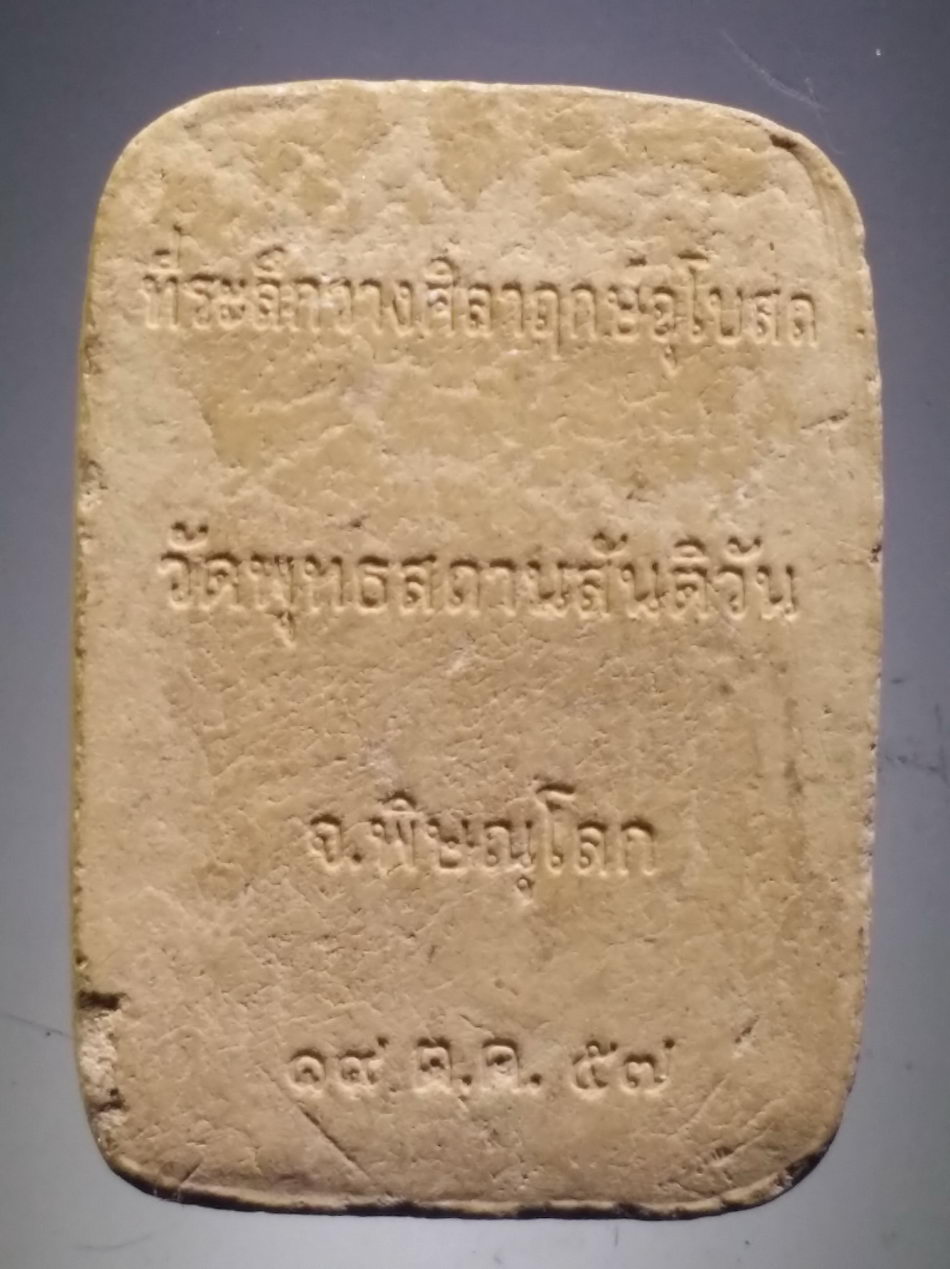 ที่ระลึกวางศิลาฤกษ์อุโบสถ
วัดพุทธสถานสันติวัน
จ.พิษณุโลก
๑๙ ต.ค. ๕๗